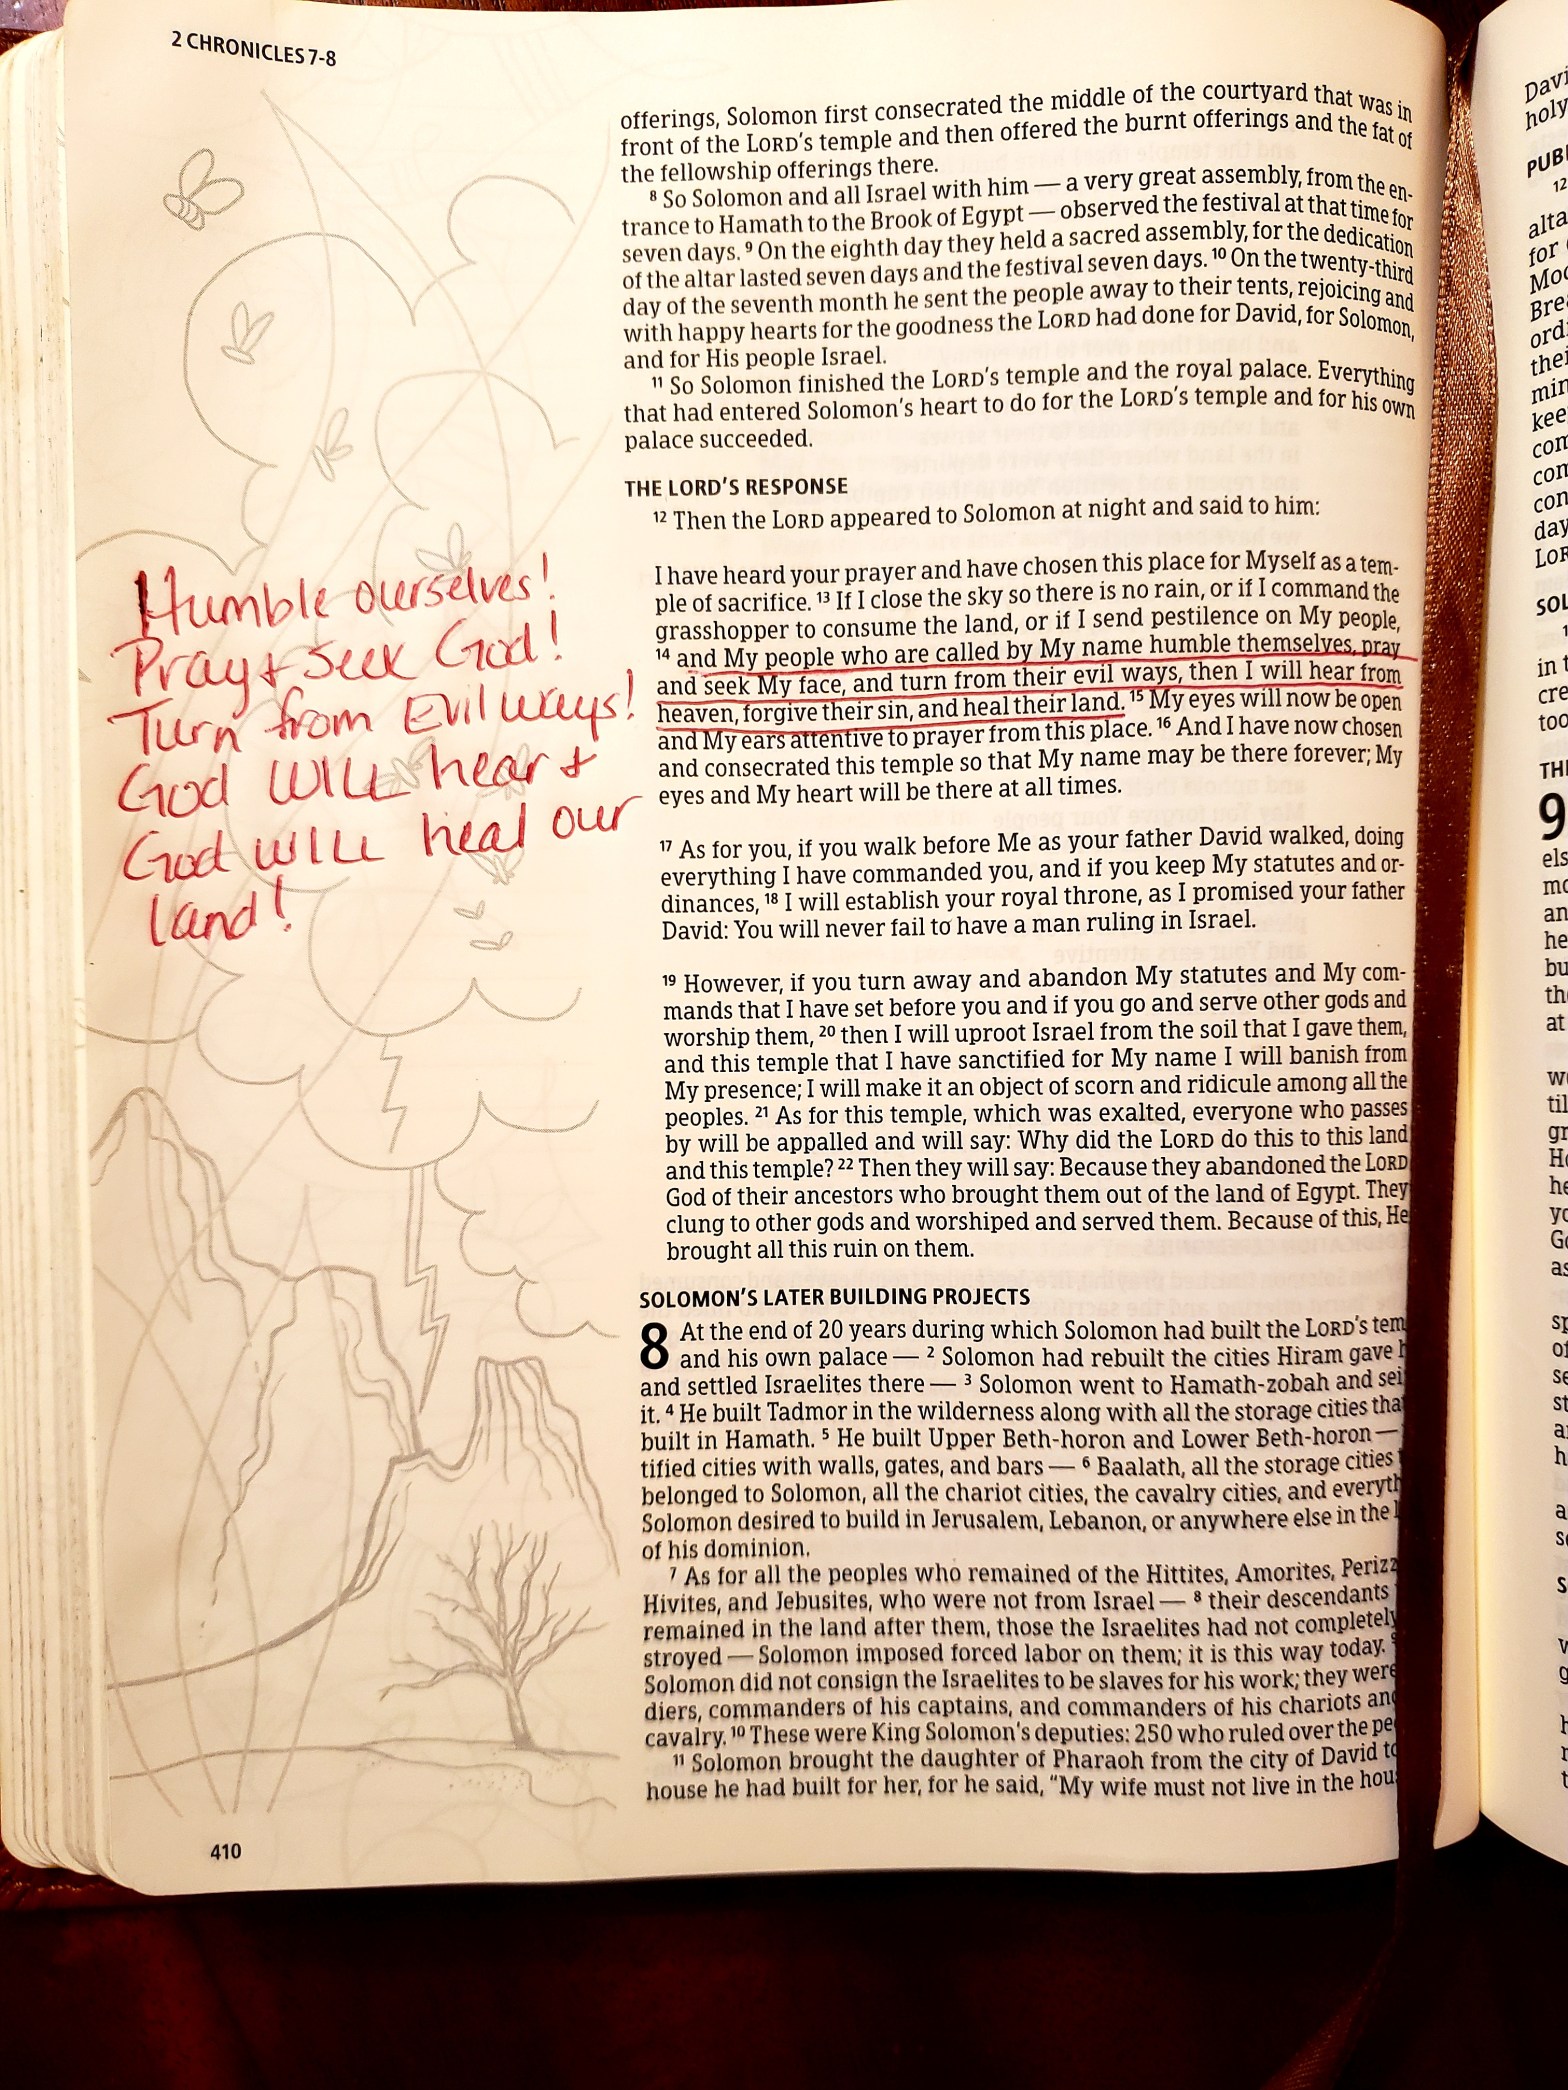 2 CHRONICLES 7-8
offerings, Solomon first consecrated the middle of the courtyard that was in
front of the LORD's temple and then offered the burnt offerings and the fat of
the fellowship offerings there.
8 So Solomon and all Israel with him — a very great assembly, from the en-
trance to Hamath to the Brook of Egypt — observed the festival at that time for
seven days. 9 On the eighth day they held a sacred assembly, for the dedication
of the altar lasted seven days and the festival seven days. 10 On the twenty-third
day of the seventh month he sent the people away to their tents, rejoicing and
with happy hearts for the goodness the LORD had done for David, for Solomon,
and for His people Israel.
11 So Solomon finished the LORD's temple and the royal palace. Everything
that had entered Solomon's heart to do for the LORD's temple and for his own
palace succeeded.
THE LORD'S RESPONSE
12 Then the LORD appeared to Solomon at night and said to him:
I have heard your prayer and have chosen this place for Myself as a tem-
ple of sacrifice. 13 If I close the sky so there is no rain, or if I command the
grasshopper to consume the land, or if I send pestilence on My people,
14 and My people who are called by My name humble themselves, pray
and seek My face, and turn from their evil ways, then I will hear from
heaven, forgive their sin, and heal their land. 15 My eyes will now be open
and My ears attentive to prayer from this place. 16 And I have now chosen
and consecrated this temple so that My name may be there forever; My
eyes and My heart will be there at all times.
17 As for you, if you walk before Me as your father David walked, doing
everything I have commanded you, and if you keep My statutes and or-
dinances, 18 I will establish your royal throne, as I promised your father
David: You will never fail to have a man ruling in Israel.
19 However, if you turn away and abandon My statutes and My com-
mands that I have set before you and if you go and serve other gods and
worship them, 20 then I will uproot Israel from the soil that I gave them,
and this temple that I have sanctified for My name I will banish from
My presence; I will make it an object of scorn and ridicule among all the
peoples. 21 As for this temple, which was exalted, everyone who passes
by will be appalled and will say: Why did the LORD do this to this land
and this temple? 22 Then they will say: Because they abandoned the LORD
God of their ancestors who brought them out of the land of Egypt. They
clung to other gods and worshiped and served them. Because of this, He
brought all this ruin on them.
SOLOMON'S LATER BUILDING PROJECTS
8 At the end of 20 years during which Solomon had built the LORD's tem
and his own palace — 2 Solomon had rebuilt the cities Hiram gave
and settled Israelites there — 3 Solomon went to Hamath-zobah and sei
it. 4 He built Tadmor in the wilderness along with all the storage cities tha
built in Hamath. 5 He built Upper Beth-horon and Lower Beth-horon —
tified cities with walls, gates, and bars — 6 Baalath, all the storage cities
belonged to Solomon, all the chariot cities, the cavalry cities, and everyth
Solomon desired to build in Jerusalem, Lebanon, or anywhere else in the
of his dominion.
7 As for all the peoples who remained of the Hittites, Amorites, Perizz
Hivites, and Jebusites, who were not from Israel — 8 their descendants
remained in the land after them, those the Israelites had not completely
stroyed — Solomon imposed forced labor on them; it is this way today.
Solomon did not consign the Israelites to be slaves for his work; they were
diers, commanders of his captains, and commanders of his chariots and
cavalry. 10 These were King Solomon's deputies: 250 who ruled over the pe
11 Solomon brought the daughter of Pharaoh from the city of David to
house he had built for her, for he said, "My wife must not live in the hou
Humble ourselves!
Pray & Seek God!
Turn from Evil ways!
God WILL hear &
God WILL heal our
land!
410